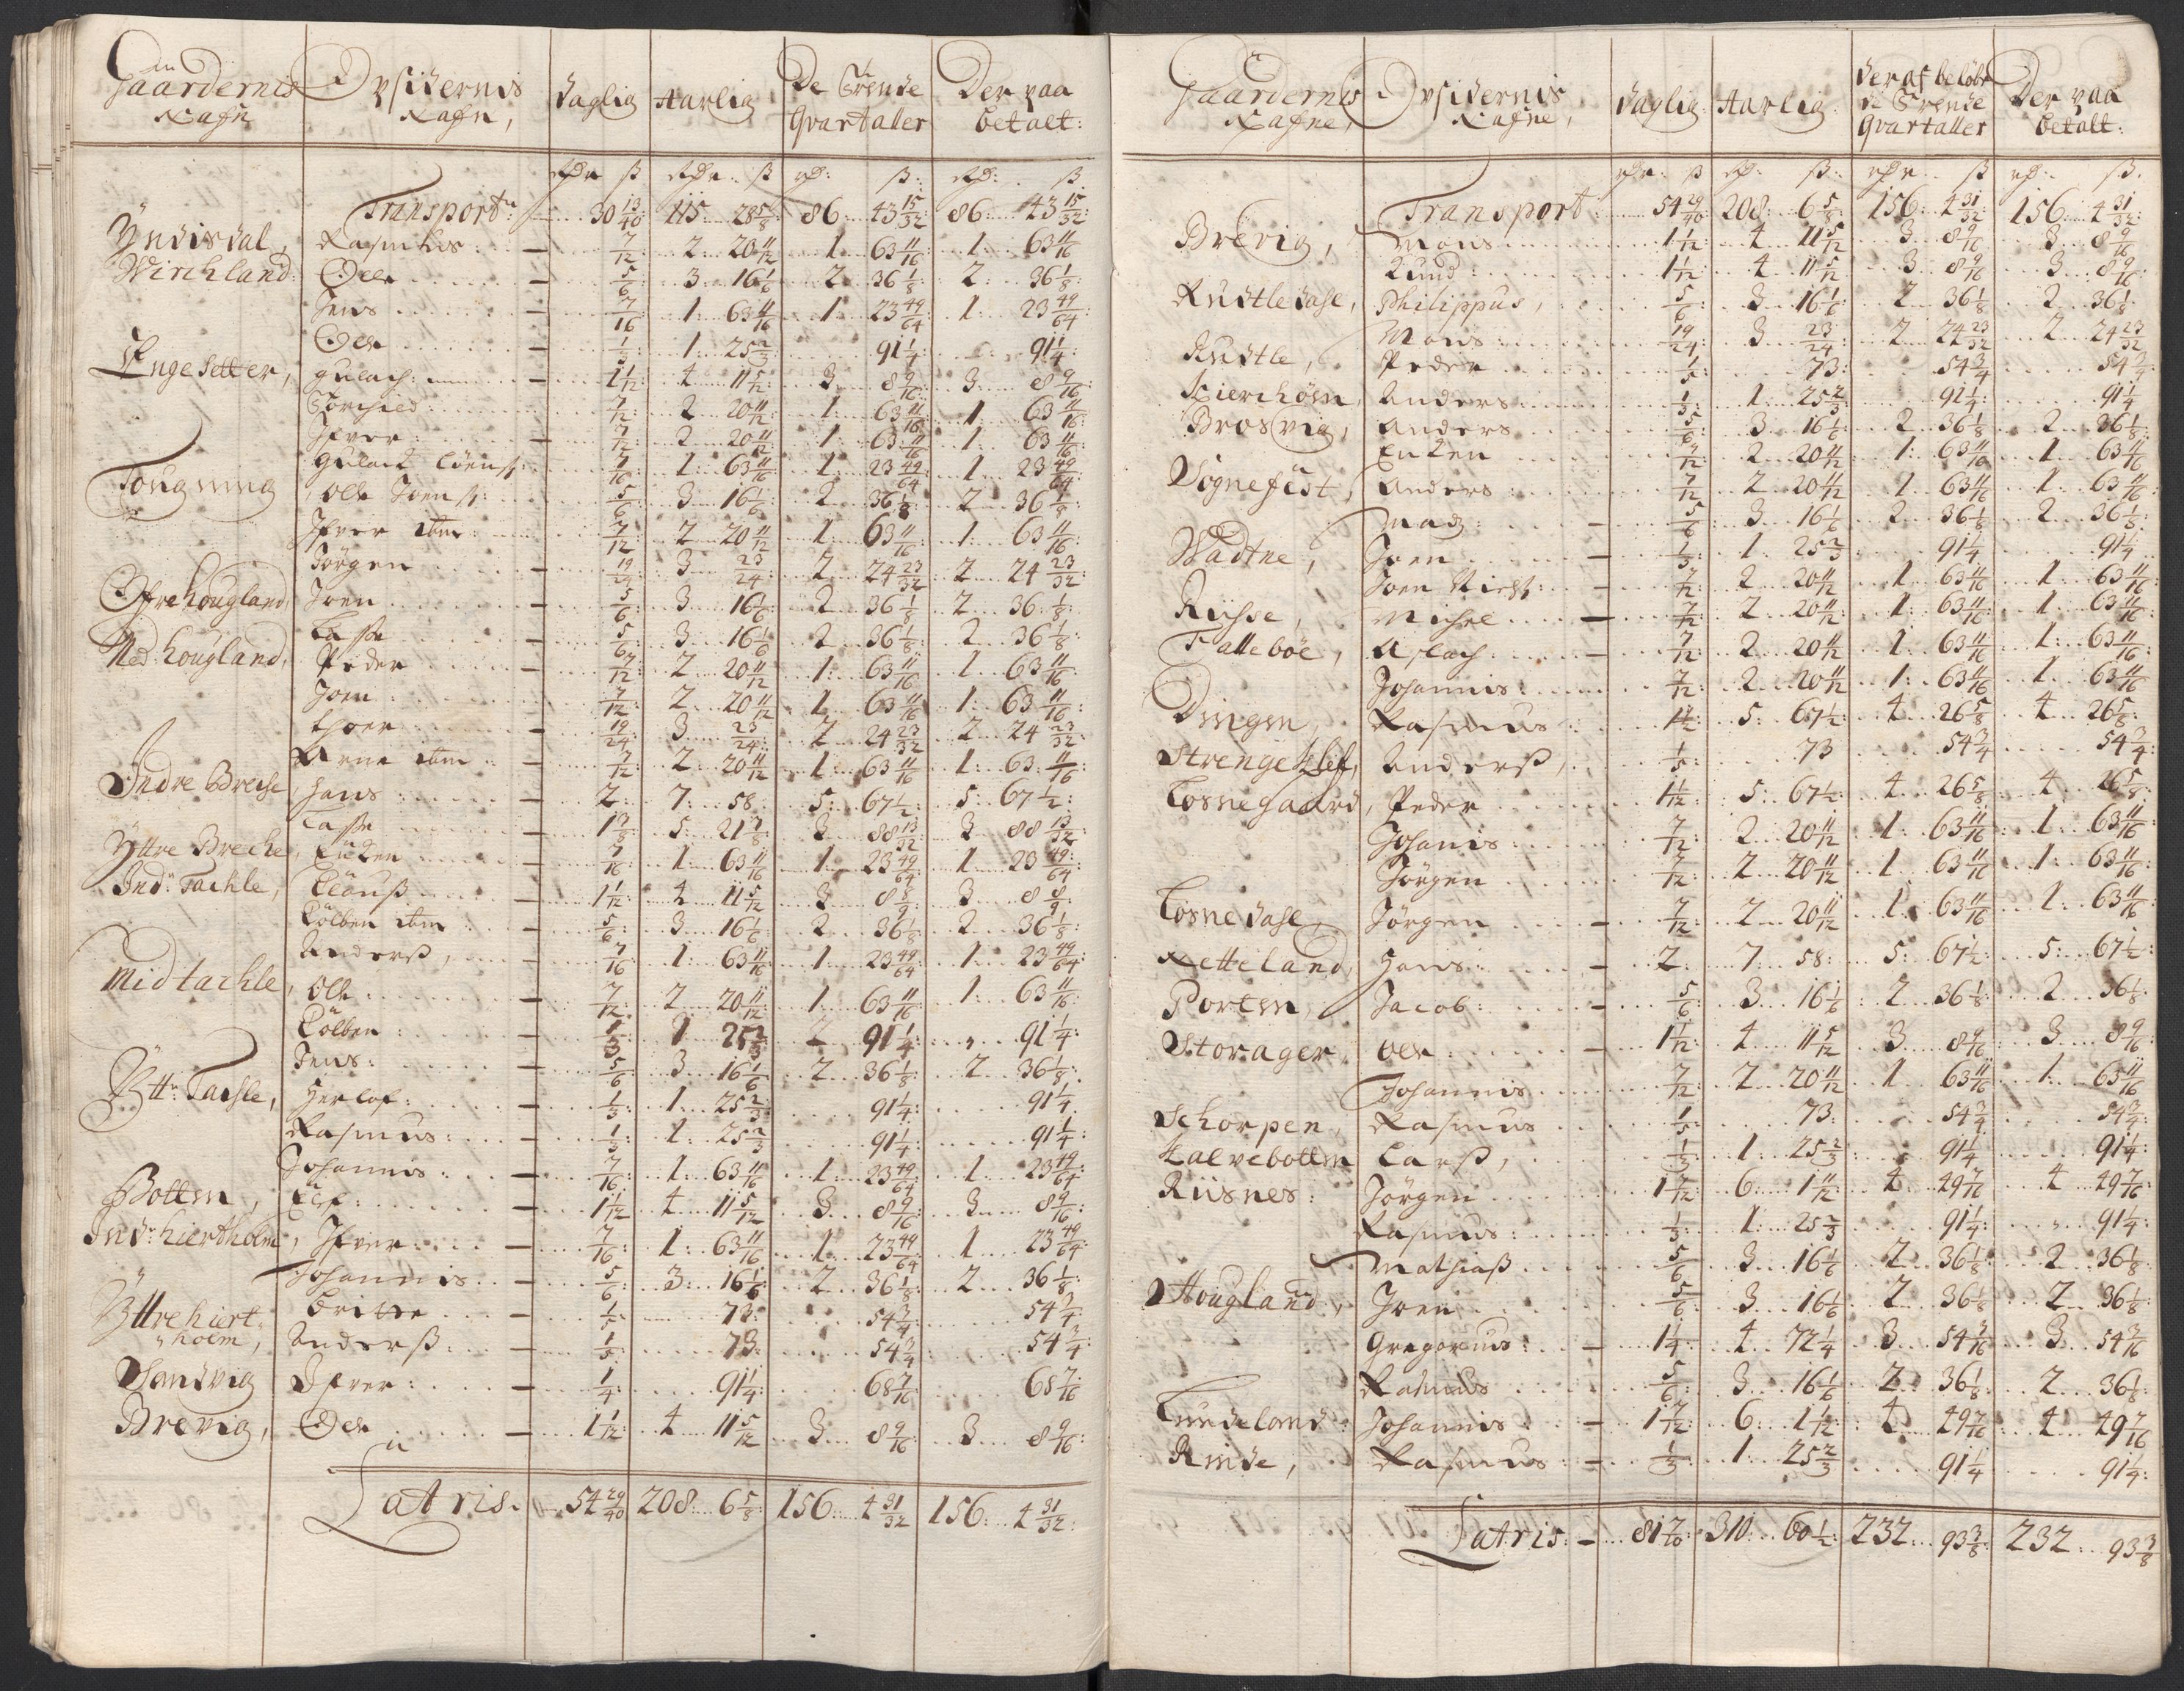 Gaardernis Opsidernis Daglig Aarlig De Trende Der paa
Nafn Nafn, Qvartaller betalt:
Rdr ß Rdr ß rd: ß: Rd: ß.
Transport: 30 13/40 115 28 5/8 86: 43 15/32 86: 43 15/32
Yndisdal, Rasmus: — 7/12 2: 20 11/12 1 63 11/16 1: 63 11/16
Wirchland: Ole — 5/6 3 16 1/6 2 36 1/8 2: 36 1/8
Jens — 7/16 1: 63 11/16 1 23 49/64 1: 23 49/64
Ole — 1/3 1: 25 2/3 91 1/4: 91 1/4
Engesetter, Gulach: — 1 1/12 4 11 5/12 3 8 9/16 3: 8 9/16
Torchied: 7/12 2 20 11/12 1: 63 11/16 1 63 11/16
Ifver: — 7/12 2 20 11/12 1: 63 11/16 1: 63 11/16
Tougning Gulack 7/16 1: 63 11/16 1: 23 49/64 1: 23 49/64
Ole 5/6 3 16 1/6 2 36 1/8 2 36 1/8
Ifver ibm: 7/12 2 20 11/12 1: 63 11/16 1: 63 11/16
Jörgen — 19/24 3 23/24 2 24 23/32 2 24 23/32
Ofrehougland, Joen — 5/6 3 16 1/6 2 36 1/8 2 36 1/8:
Ned: hougland, Lasse — 5/6 3 16 1/6 2 36 1/8 2: 36 1/8:
Peder — 7/12 2 20 11/12 1: 63 11/16 1 63 11/16
Joen: 7/12 2 20 11/12 1 63 11/16 1: 63 11/16
Thoer — 19/24 3 23/24 2 24 23/32 2 24 23/32
Arne ibm — 7/12 2: 20 11/12 1: 63 11/16 1: 63 11/16
Indre Breche, Hans — 2: 7: 58 5: 67 1/2: 5: 67 1/2:
Lasse — 1 3/8 5: 21 7/8 3 88 13/32 3 88 13/32
Yttre Breche, — 7/16 1: 63 11/16 1: 23 49/64 1 23 49/64
Ind: Tachle, Clauß — 1 1/12 4 11 5/12 3 8 3 8
Colben ibm — 5/6 3 16 1/6 2 36 1/8 2 36 1/8
Anderß, — 7/16 1: 63 11/16 1 23 49/64 1: 23 49/64
Mid tachle, Ole — 7/12 2 20 11/12 1: 63 11/16 1: 63 11/16
Colben: 1/3 1 25 2/3 91 1/4 91 1/4:
Jens: — 5/6 3 16 1/6 2 36 1/8 2 36 1/8
Ytt: Tachle, Herlof: — 1/3 1 25 2/3 91 1/4: 91 1/4
Rasmus: — 1/3 1: 25 2/3 91 1/4: 91 1/4:
Johannis — 7/16 1: 63 11/16 1: 23 49/64 1 23 49/64
Botten, Elf: — 1 1/12 4 11 5/12 3 8 9/16 3 8 9/16
Ind: hiertholm, Ifver — 7/16 1: 63 11/16 1 23 49/64 1 23 49/64
Johannis — 5/6: 3: 16 1/6 2 36 1/8 2 36 1/8
Yttrehiert: — 1/5: 73: 54 3/4 54 3/4
holm, Anderß: — 1/5: 73: 54 3/4 54 3/4
Sandvig Ifver: — 1/4: 91 1/4: 68 7/16 68 7/16
Brevig, Ole — 1 1/12: 4 11 5/12 3 8 9/16 3 8 9/16
Latris. 54 29/40 208 6 5/8: 156 4 31/32 156: 4 31/32
Gaardernes Opsidernis Daglig: Aarlig: Deraf beløbr Der paa
Nafne, Nafne, de Trende betalt:
Qvartaller
rdr: ß rd: ß: rdr ß rd: ß.
Transport: 54 29/40 208: 6 5/8 156 4 31/32 156: 4 31/32
Brevig, Mons 1 1/12 4 11 5/12 3 8 9/16 3 8 9/16
Knud: 1 1/12 4 11 5/12 3 8 9/16 3 8 9/16
Rustledahl, Philippus, 5/6 3 16 1/6 2 36 1/8 2 36 1/8
Mons 19/24 3 23/24 2 24 23/32 2 24 23/32
Rustle, Peder 1/5 73: 54 3/4 54 3/4
Kierchöen, Anders 1/3: 1: 25 2/3 91 1/4: 91 1/4
Brosvig, Anders 5/6: 3 16 1/6 2 36 1/8 2 36 1/8
7/12 2 20 11/12 1: 63 11/16 1: 63 11/16
Sognefest, Anders: 7/12 2 20 11/12 1 63 11/16 1: 63 11/16
Madz: — 5/6 3 16 1/6 2 36 1/8 2 36 1/8
Wadtne, Joen — 1/3 1: 25 2/3 91 1/4 91 1/4
Joen — 7/12: 2 20 11/12 1 63 11/16 1: 63 11/16
Risse, Michel — 7/12 2 20 11/12 1: 63 11/16 1: 63 11/16
Talleböe, Aslach — 7/12: 2 20 11/12 1: 63 11/16 1: 63 11/16
Johannis: 7/12: 2 20 11/12 1: 63 11/16 1: 63 11/16
Dingen, Rasmus 1 1/2 5: 67 1/2 4 26 5/8 4 26 5/8
Strenge Anderß, 1/5: 73 54 3/4 54 3/4
Losnegaard, Peder 1 1/2 5: 67 1/2 4 26 5/8 4 26 5/8
Johanis: 7/12 2 20 11/12 1: 63 11/16 1: 63 11/16
Jörgen 7/12 2 20 11/12 1 63 11/16 1: 63 11/16
Losnedahl, Jörgen — 7/12 2 20 11/12 1 63 11/16 1: 63 11/16
Netteland, Hans — 2: 7 58: 5: 67 1/2: 5: 67 1/2
Porten, Jacob: — 5/6 3 16 1/6 2 36 1/8 2 36 1/8
Storager, Ole — 1 1/12 4 11 5/12 3 8 9/16 3 8 9/16
Johannis 7/12 2 20 11/12 1 63 11/16 1: 63 11/16
Schorpen, Rasmus 1/5 73: 54 3/4 54 3/4
Kalvebotten Larß, 1/3 1 25 2/3 91 1/4 91 1/4
Riisnes: Jörgen 1 7/12 6 1 11/12 4 49 7/16 4 49 7/16
Rasmus: 1/3: 1: 25 2/3 91 1/4: 91 1/4:
Mathiaß 5/6 3 16 1/6 2 36 1/8 2 36 1/8
Hougland, Joen 5/6 3 16 1/6 2 36 1/8 2 36 1/8
Gregorius: — 1 1/4 4 72 1/4 3 54 3/16 3 54 3/16
Rasmus 5/6 3 16 1/6 2 36 1/8 2 36 1/8
Johannis — 1 7/12 6: 1 11/12 4 49 7/16 4 49 7/16
Rinde, Rasmus: — 1/3 1 25 2/3 91 1/4 91 1/4
Latris: — 81 310 60 1/2: 232 93 3/8 232 93 3/8